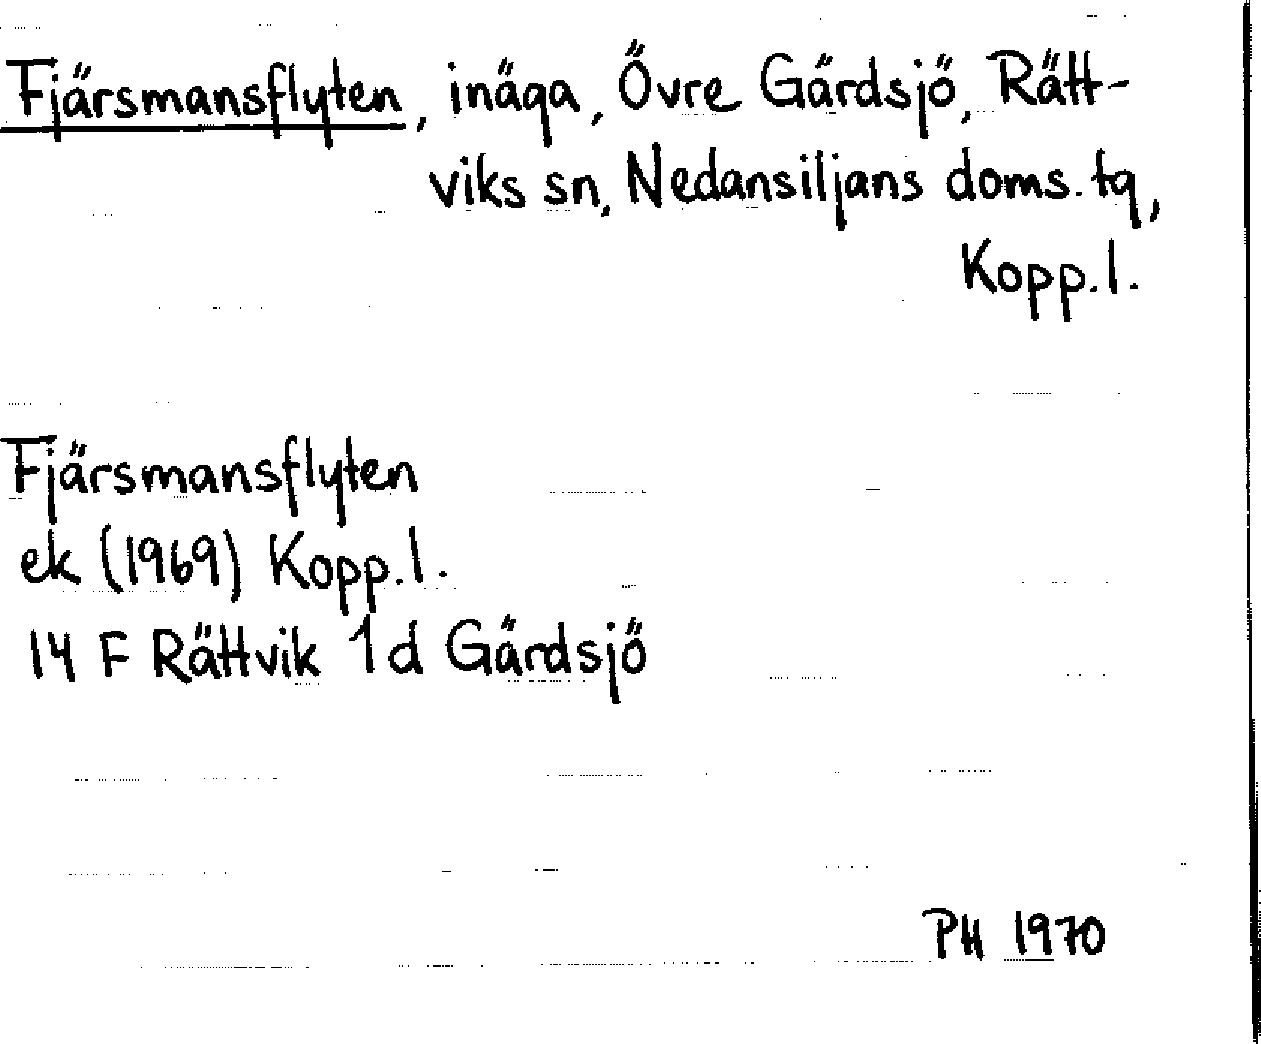 Fjärsmansflyten, inäga, Övre Gärdsjö, Rätt-
viks sn, Nedansiljans doms. tg,
Kopp.l.
Fjärsmansflyten
ek (1969) Kopp.l.
14 F Rättvik 1d Gärdsjö
PH 1970